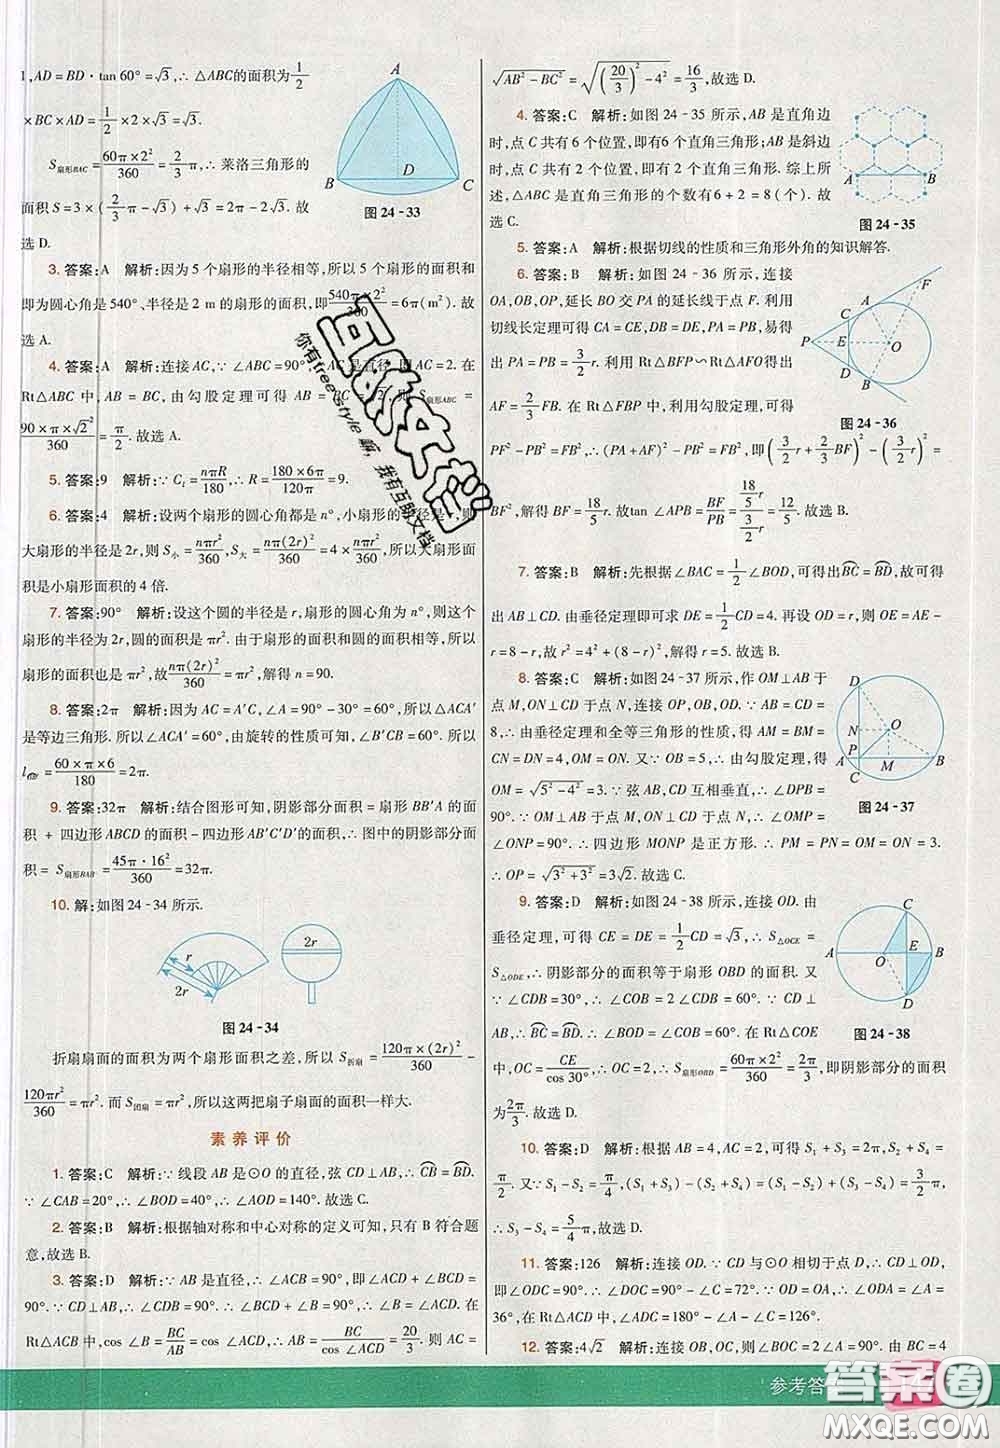 1,AD=BD·tan 60°=√3,∴△ABC的面积为1/2
×BC×AD=1/2×2×√3=√3.
S扇形BAC=60π×2²/360=2/3π,∴莱洛三角形的
面积S=3×(2/3π-√3)+√3=2π-2√3.故
选D.
A
B
D
C
图24-33
3.答案:A 解析:因为5个扇形的半径相等,所以5个扇形的面积和
即为圆心角是540°、半径是2 m的扇形的面积,即540π×2²/360=6π(m²).故
选A.
4.答案:A 解析:连接AC,∵∠ABC=90°,AC是直径,即AC=2.在
Rt△ABC中,AB=BC,由勾股定理可得AB=BC=√2,S扇形ABC=
90×π×√2²/360=π/2.故选A.
5.答案:9 解析:∵Cl=nπR/180,∴R=180×6π/120π=9.
6.答案:4 解析:设两个扇形的圆心角都是n°,小扇形的半径是r,则
大扇形的半径是2r,则S小=nπr²/360,S大=nπ(2r)²/360=4×nπr²/360,所以大扇形面
积是小扇形面积的4倍.
7.答案:90° 解析:设这个圆的半径是r,扇形的圆心角为n°,则这个
扇形的半径为2r,圆的面积是πr².由于扇形的面积和圆的面积相等,所以
扇形的面积也是πr²,故nπ(2r)²/360=πr²,解得n=90.
8.答案:2π 解析:因为AC=A'C,∠A=90°-30°=60°,所以△ACA'
是等边三角形.所以∠ACA'=60°,由旋转的性质可知,∠B'CB=60°,所以
l=60×π×6/180=2π.
9.答案:32π 解析:结合图形可知,阴影部分面积=扇形BB'A的面
积+四边形ABCD的面积-四边形AB'C'D'的面积,∴图中的阴影部分面
积=S扇形BAB'=45π·16²/360=32π.
10.解:如图24-34所示.
r
2r
2r
图24-34
折扇扇面的面积为两个扇形面积之差,所以S折扇=120π×(2r)²/360-
120πr²/360=πr².而S团扇=πr²,所以这两把扇子扇面的面积一样大.
素养评价
1.答案:C 解析:∵线段AB是⊙O的直径,弦CD⊥AB,∴CB=BD.
∵∠CAB=20°,∴∠BOD=40°,∴∠AOD=140°.故选C.
2.答案:B 解析:根据轴对称和中心对称的定义可知,只有B符合题
意,故选B.
3.答案:D 解析:∵AB是直径,∴∠ACB=90°,∴∠ACD+∠BCD=
90°.∵CD⊥AB,∴∠BCD+∠B=90°,∴∠B=∠ACD.在
Rt△ACB中,cos∠B=BC/AB=cos∠ACD,∴AB=BC/cos∠ACD=20/3.则AC=
√AB²-BC²=√(20/3)²-4²=16/3,故选D.
4.答案:C 解析:如图24-35所示,AB是直角边
时,点C共有6个位置,即有6个直角三角形;AB是斜边
时,点C共有2个位置,即有2个直角三角形.综上所
述,△ABC是直角三角形的个数有6+2=8(个).故
选C.
A
B
图24-35
5.答案:A 解析:根据切线的性质和三角形外角的知识解答.
6.答案:B 解析:如图24-36所示,连接
OA,OB,OP,延长BO交PA的延长线于点F.利用
切线长定理可得CA=CE,DB=DE,PA=PB,易得
出PA=PB=3/2r.利用Rt△BFP∽Rt△AFO得出
AF=2/3FB.在Rt△FBP中,利用勾股定理,可得出
F
A
C
P
E
O
D
B
图24-36
PF²-PB²=FB²,∴(PA+AF)²-PB²=FB²,即(3/2r+2/3BF)²-(3/2r)²=
BF²,解得BF=18/5r.故tan∠APB=BF/PB=18/5r/3/2r=12/5.故选B.
7.答案:B 解析:先根据∠BAC=1/2∠BOD,可得出BC=BD,故可得
出AB⊥CD,由垂径定理即可求DE=1/2CD=4.再设OD=r,则OE=AE-
r=8-r,故r²=4²+(8-r)²,解得r=5.故选B.
8.答案:C 解析:如图24-37所示,作OM⊥AB于
点M,ON⊥CD于点N,连接OP,OB,OD.∵AB=CD=
8,∴由垂径定理和全等三角形的性质,得AM=BM=
CN=DN=4.由勾股定理得ON=
OM=√5²-4²=3.∵弦AB,CD互相垂直,∴∠DPB=
90°.∵OM⊥AB,ON⊥CD,∴∠OMP=
∠ONP=90°.∴四边形MONP是正方形.∴PM=PN=OM=ON=3.
∴OP=√3²+3²=3√2.故选C.
D
N
O
P
A
M
B
C
图24-37
9.答案:D 解析:如图24-38所示,连接OD.由
垂径定理,可得CE=DE=1/2CD=√3,∴S△OCE=
S△ODE,∴阴影部分的面积等于扇形OBD的面积.
∵∠CDB=30°,∴∠COB=60°.∵CD⊥
AB,∴BC=BD.∴∠BOD=60°.在Rt△COE
C
A
O
E
B
D
图24-38
中,OC=CE/cos 30°,∴OC=2,∴S扇形OBD=60π×2²/360=2π/3,即阴影部分的面积
为2π/3.故选D.
10.答案:D 解析:根据AB=4,AC=2,可得S1+S3=2π,S2+S4=
π/2.又∵S1-S2=π/4,(S1+S3)-(S2+S4)=(S1-S2)+(S3-S4)=3/2π,
∴S3-S4=5/4π,故选D.
11.答案:126 解析:连接OD.∵CD与⊙O相切于点D,∴CD⊥OD,
∴∠ODC=90°.∴∠DOC=90°-∠C=72°.∵OD=OA,∴∠A=
36°,在Rt△ACD中,∠ADC=180°-∠A-∠C=126°.
12.答案:4√2 解析:连接OB,OC,则∠BOC=2∠A=90°.由BC=4
参考答
答案圈
MXQE.COM
互助文档
你有freestyle嘛,我有互助文档